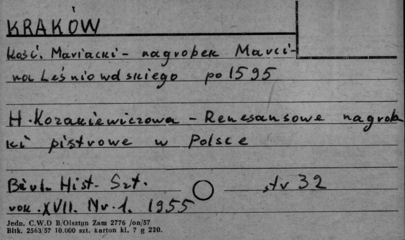 KRAKÓW
Kość. Mariacki - nagrobek Marci-
na Leśniowolskiego po 1595
H. Kozakiewiczowa - Renesansowe nagrob
ki piętrowe w Polsce
Biul. Hist. Szt. str 32
rok XVII. Nr. 1. 1955
Jedn. C.W.D B/Olsztyn Zam 2776 /on/57
Blkt. 2563/57 10.000 szt. karton kl. 7 g 220.